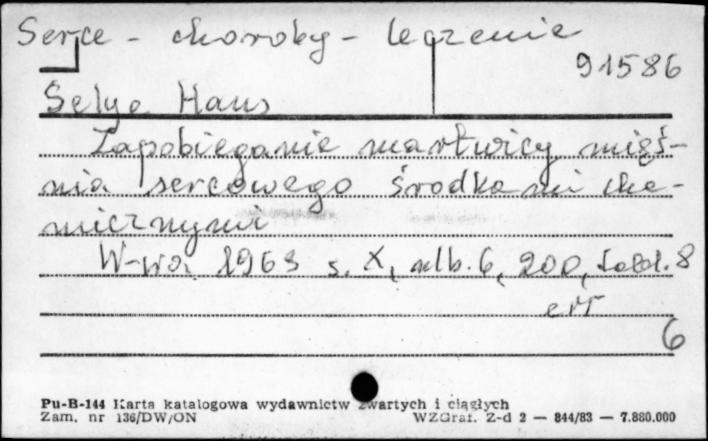 Serce - choroby - leczenie
91586
Selye Hans
Zapobieganie martwicy mięś-
nia sercowego środkami che-
micznymi
W-wa 1963 s. X, nlb. 6, 200, tabl. 8
err
6
Pu-B-144 Karta katalogowa wydawnictw zwartych i ciągłych
Zam. nr 136/DW/ON WZGraf. Z-d 2 — 844/83 — 7.880.000